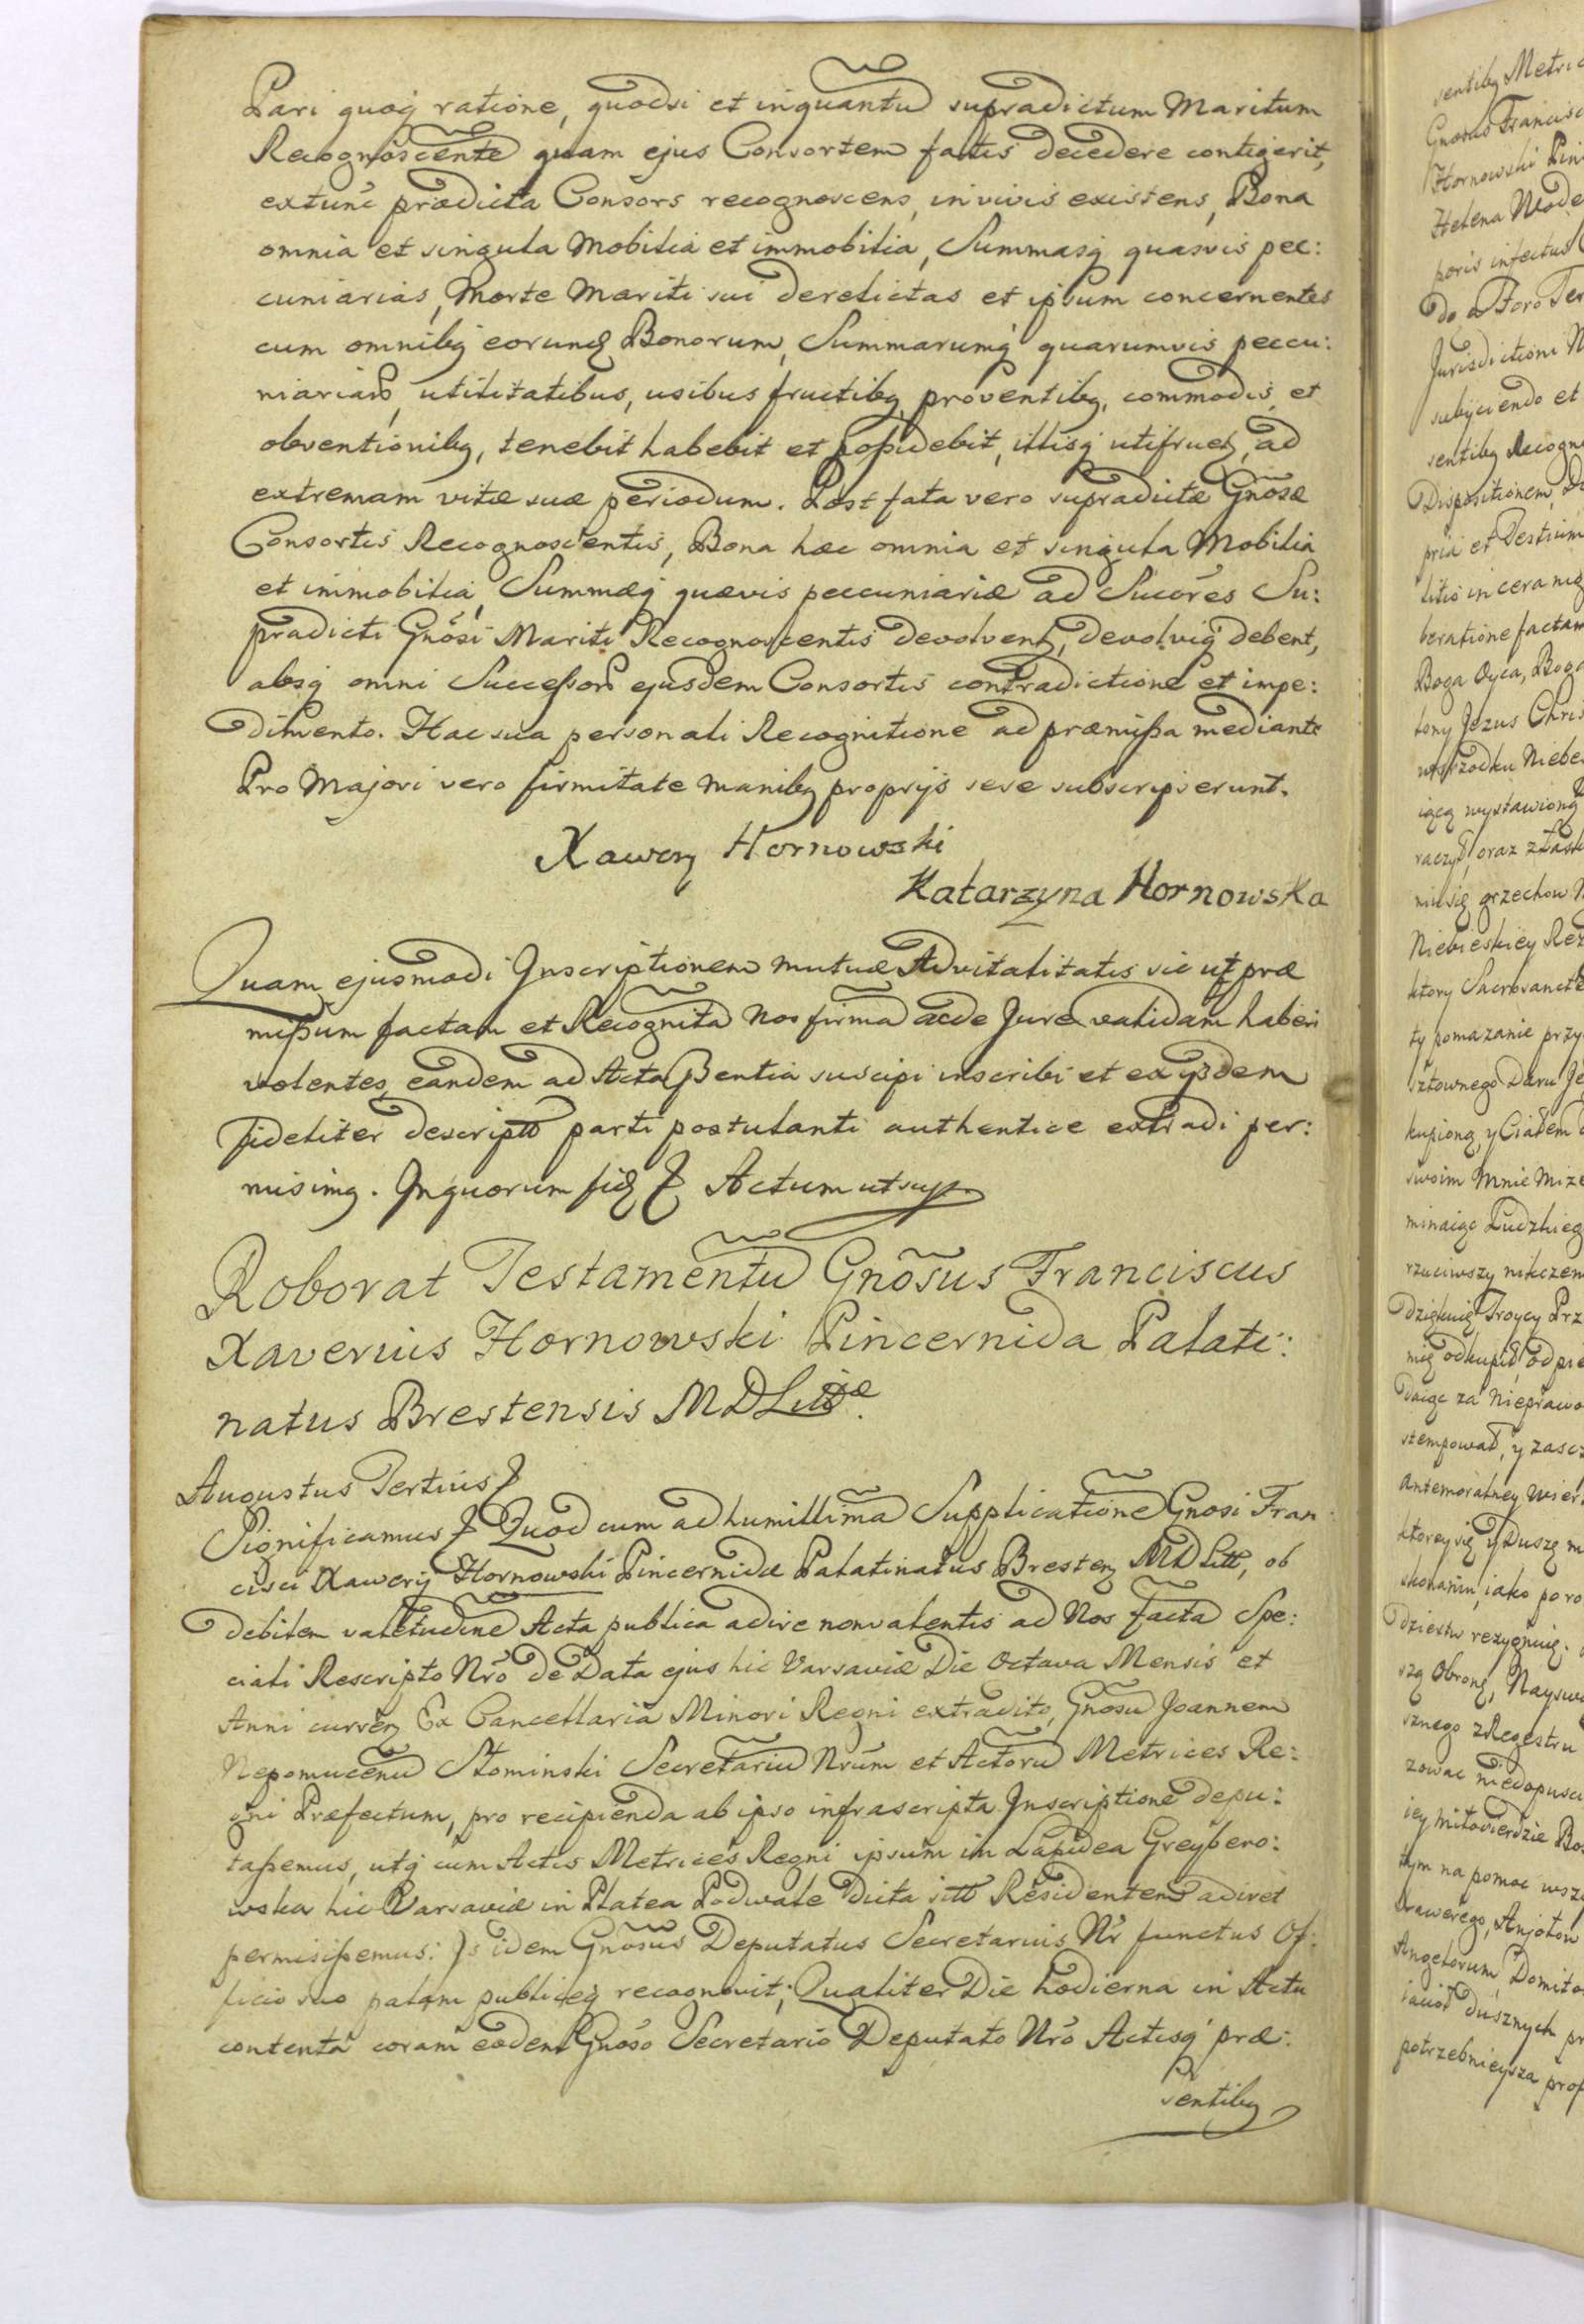 Pari quoq; ratione, quodsi et inquantũ supradictum Maritum
Recognoscentẽ quam ejus Consortem fatis decedere contigerit,
extunc prædicta Consors recognoscens, in vivis existens, Bona
omnia et singula Mobilia et immobilia, Summasq; quasvis pec:
cuniarias, Morte Mariti sui derelictas et ipsum concernentes
cum omnibq eorund Bonorum, Summarumq; quarumvis peccu:
niariarũ, utilitatibus, usibus fructibq, proventibq, commodis, et
obventionibq, tenebit habebit et possidebit, illisq; utifruet, ad
extremam vitæ suæ periodum. Post fata vero supradictæ Gnõsæ
Consortis Recognoscentis, Bona hæc omnia et singula Mobilia
et immobilia, Summæq; quævis peccuniariæ ad Sucõres Su:
pradicti Gnõsi Mariti Recognoscentis devolvent, devolviq; debent,
absq; omni Successorũ ejusdem Consortis contradictione et impe:
dimento. Hac sua personali Recognitione ad præmissa mediante
Pro Majori vero firmitate manibq proprijs sese subscripserunt.
Xawery Hornowski
Katarzyna Hornowska
Quam ejusmodi Inscriptionem mutuæ Advitalitatis sic ut præ
missum factam et Recognitã Nos firmã acde Jure validam haberi
volentes, eandem ad Acta pñtia suscipi inscribi et ex ijsdem
fideliter descriptã parti postulanti authentice extradi per:
misimq. In quorum fid &c Actum ut supra
Roborat Testamentũ Gnõsus Franciscus
Xaverius Hornowski Pincernida Palati:
natus Brestensis MDLittæ.
Augustus Tertius &c
Significamus &c Quod cum ad humillimã Supplicationẽ Gnosi Fran
cisci Xawerij Hornowski Pincernidæ Palatinatus Bresten MDLitt, ob
debilem valetudinẽ Acta publica adire nonvalentis ad Nos factã Spe:
ciali Rescripto Nrõ de Data ejus hic Varsaviæ Die Octava Mensis et
Anni curren Ex Cancellaria Minori Regni extradito, Gnõsũ Joannem
Nepomucenũ Słominski Secretariũ Nrũm et Actorũ Metrices Re:
gni Præfectum, pro recipienda ab ipso infrascripta Inscriptione depu:
tassemus, utq; cum Actis Metrices Regni ipsum in Lapidea Greybero:
wska hic Varsaviæ in Platea Podwale dicta sitã Residentem adiret
permisissemus: Is idem Gnõsus Deputatus Secretarius Nr functus Of:
ficio suo palam publiceq; recognovit; Qualiter Die hodierna in Actu
contenta coram eodem Gnõso Secretario Deputato Nrõ Actisq; præ:
sentibq
sentibq Metric
Gnosus Francisc
Hornowski Pin
Helena Wode
poris infectus
do a Foro Ter
Jurisdictioni
subijciendo et
sentibq Recogn
Dispositionem
pria et Testium
litis in cera
beratione factam
Boga Oyca, Boga
tony Jezus Chris
wsrzodku Niebe
iącą wystawioną
raczył, oraz
grzechow
Niebieskiey
ktory Sacrosanctæ
ty pomazanie przy
sztownego Daru Je
kupioną, y Ciałem
swoim Mnie Mize
minaiąc Ludzkieg
rzuciwszy nikczem
dziękuię Troycy Prz
mię odkupił, od pie
daiąc za Nieprawo
stempował, y zascz
antemoralney wier
ktorey się y Duszę m
skonaniu, iako po ro
dziestw rezygnuię.
szą Obronę, Nayswi
sznego z Regestru
zowac niedopusci
iey miłosierdzie Bos
tym na pomoc wsz
Xawerego, Anjołow
Angelorum, Domito
iaciół dusznych pr
potrzebnieysza prof